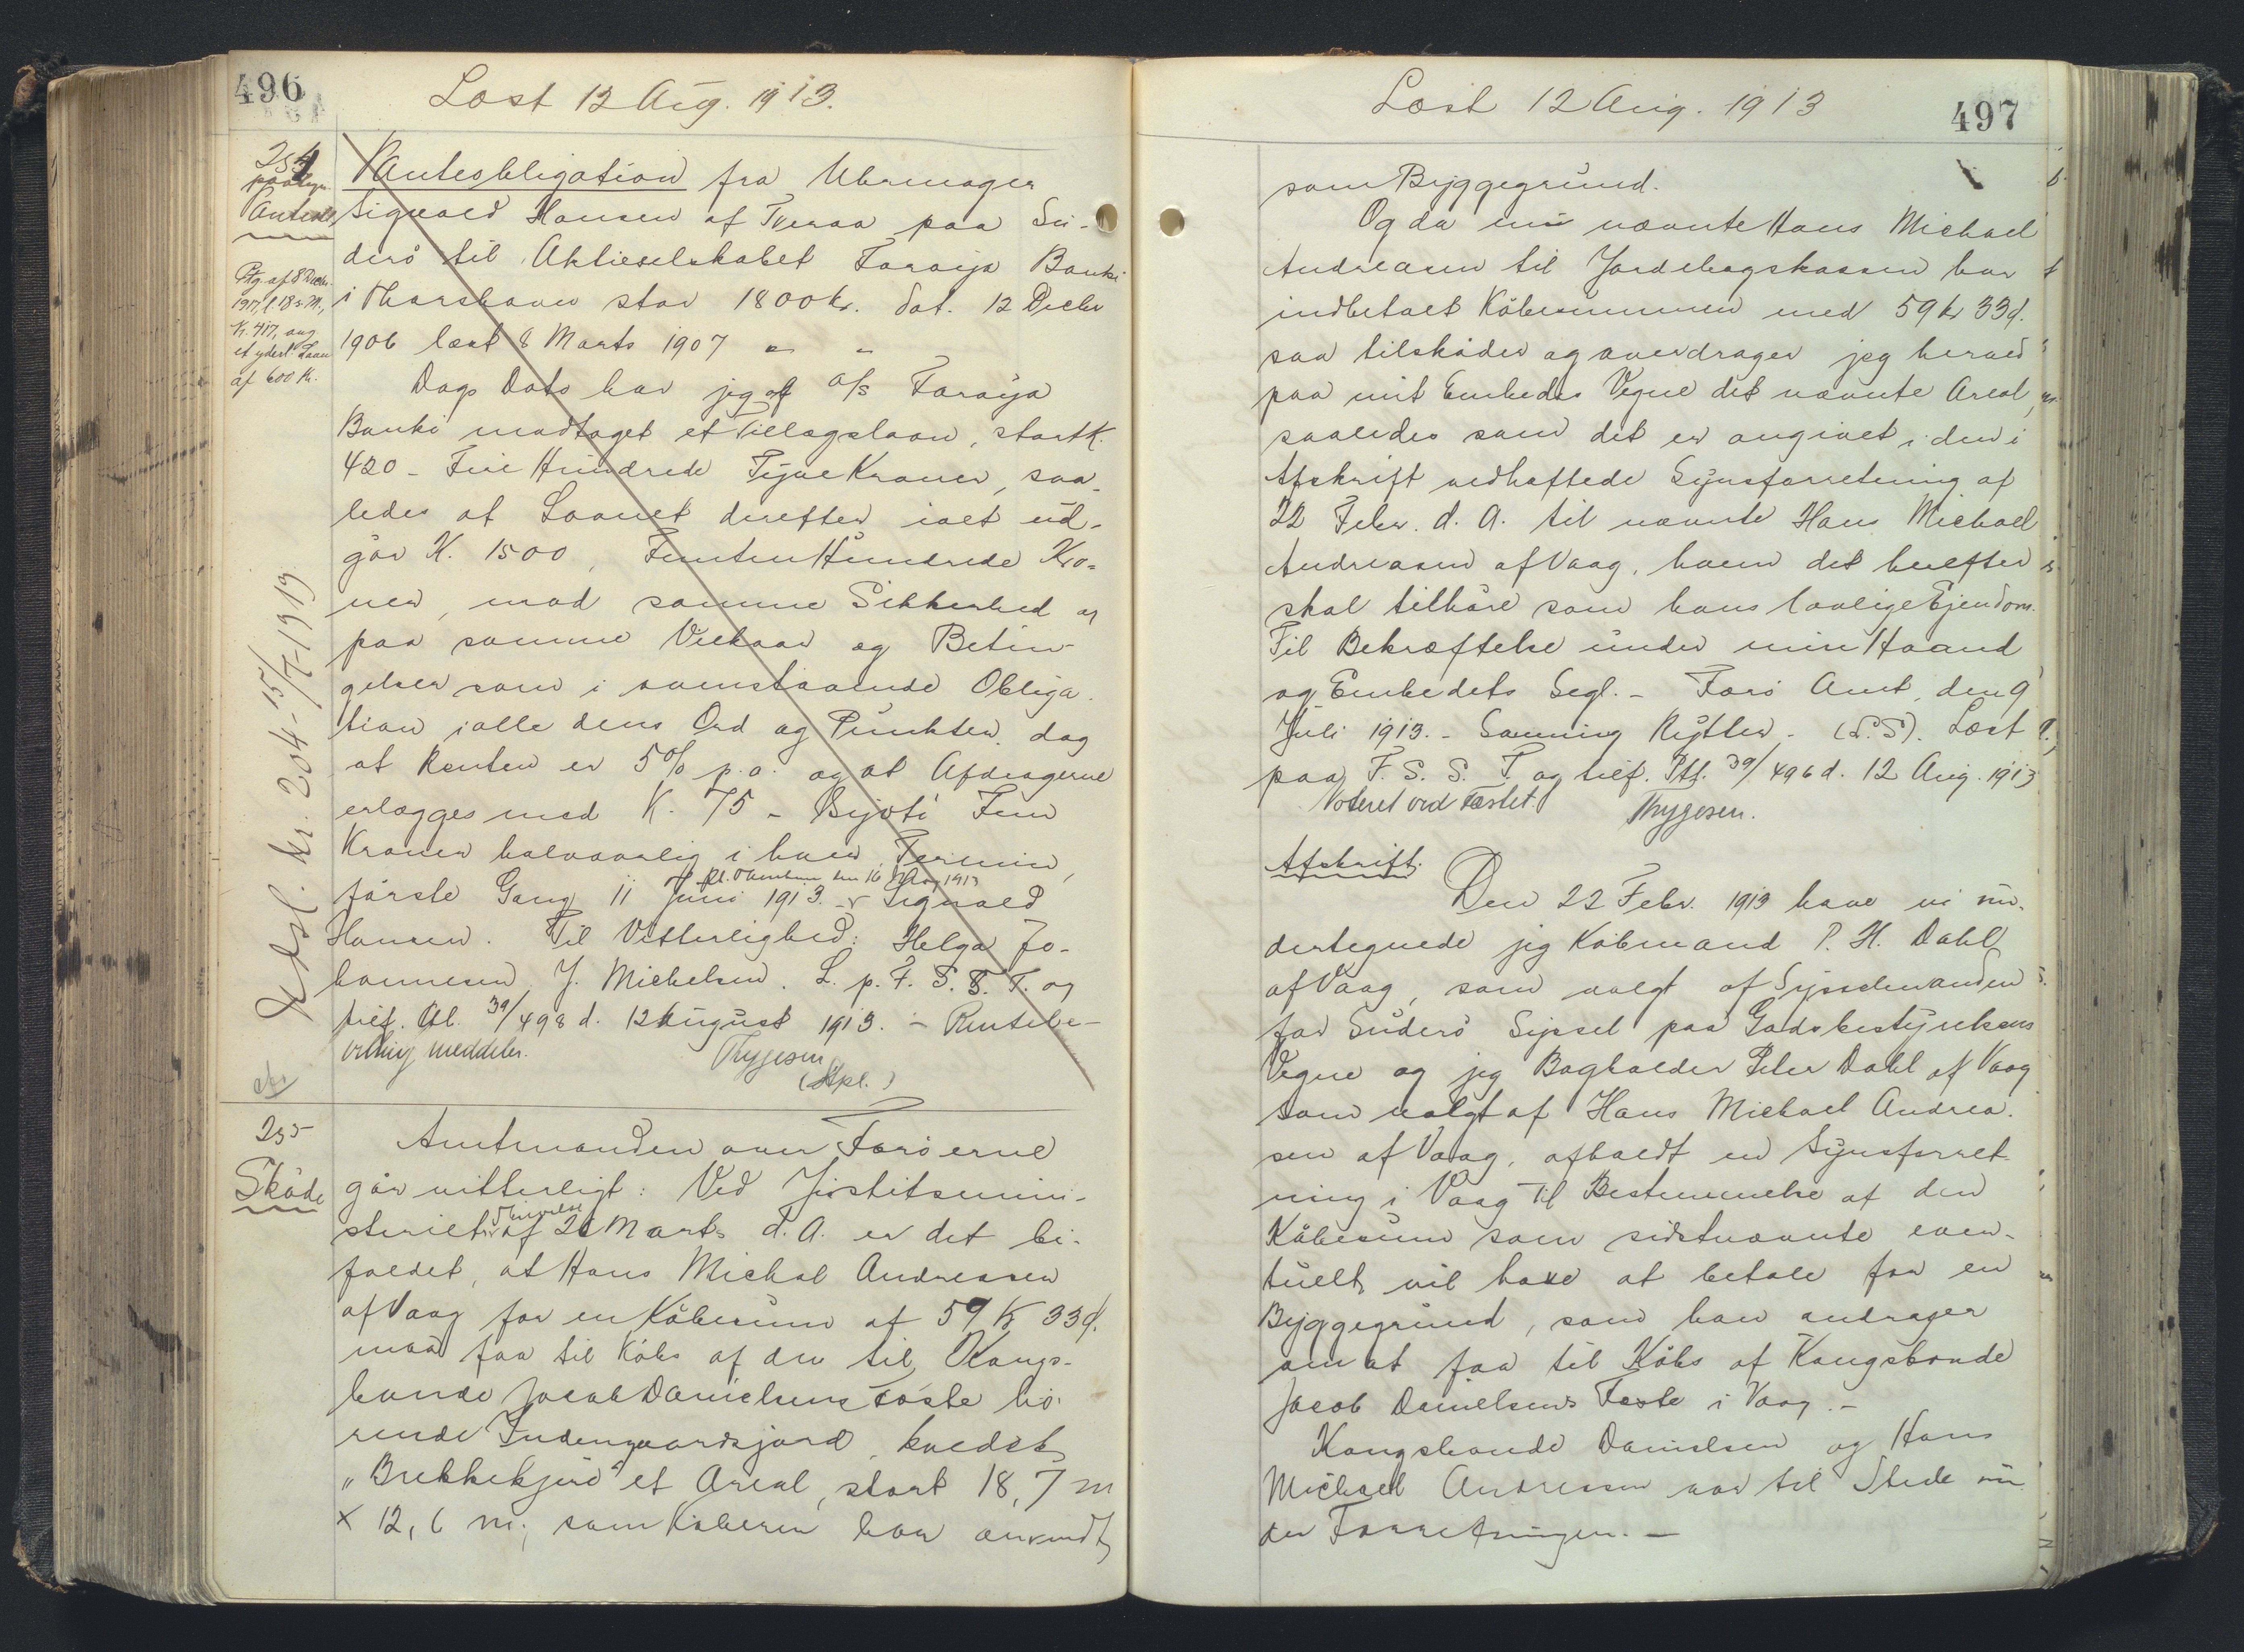 496
Læst 12 Aug. 1913.
254
paategn.
Panteobl
Ptg. af 8 Decbr.
1917, l. 18 s. M.,
K. 417, ang.
et yderl. Laan
af 600 Kr.
Udsl. kr. 204 - 15/7-1919
Panteobligation fra Uhrmager
Sigvald Hansen af Tveraa paa Su-
derö til Aktieselskabet Föroya Banki
i Thorshavn stor 1800 kr. dat. 12 Decbr
1906 læst 8 Marts 1907 " "
Dags Dato har jeg af A/S Föroya
Banki modtaget et Tillægslaan, stort K.
420 - Fire Hundrede Tyve Kroner, saa-
ledes at Laanet derefter ialt ud-
gör K. 1500, Femten Hundrede Kro-
ner, mod samme Sikkerhed og
paa samme Vilkaar og Betin-
gelser som i ovenstaaende Obliga-
tion i alle dens Ord og Punkter, dog
at Renten er 5% p.a. og at Afdragene
erlægges med K. 75 - Syvti Fem
Kroner halvaarlig i hver Termin,
förste Gang 11 Juni 1913. - Sigvald
pt. Thorshavn den 16 Maj 1913
Hansen. Til Vitterlighed: Helga Jo-
hannesen, J. Michelsen. L. p. F. S. S. T. og
tilf. Pbl. 39/498 d. 12 August 1913. - Rentebe-
vilning meddeles.
Thygesen
(Kpl.)
255
Sköde
Amtmanden over Færöerne
gör vitterligt: Ved Justitsmini-
steriets Skrivelse af 26 Marts d. A. er det bi-
faldet, at Hans Michal Andreasen
af Vaag for en Köbesum af 59 Kr 33 d.
maa faa til Köbs af den til Kongs-
bonde Jacob Danielsens Fæste hö-
rende Indengaardsjord, kaldet
"Brekkekjerd" et Areal, stort 18,7 m
x 12,6 m; som Köberen har anvendt
497
Læst 12 Aug. 1913
som Byggegrund.
Og da nu nævnte Hans Michael
Andreasen til Jordebogskassen har
indbetalt Köbesummen med 59 Kr 33 d.
saa tilsköder og overdrager jeg herved
paa mit Embedes Vegne det nævnte Areal,
saaledes som det er angivet i den i
Afskrift vedhæftede Synsforretning af
22 Febr. d. A. til nævnte Hans Michael
Andreasen af Vaag, hvem det herefter
skal tilhöre som hans lovlige Ejendom.
Til Bekræftelse under min Haand
og Embedets Segl. - Færö Amt, den 9
Juli 1913. - Svenning Rytter - (L.S). Læst
paa F. S. S. T. og tilf. Ptf. 39/496 d. 12 Aug. 1913
Noteret ved Fæstet.
Thygesen.
Afskrift.
Den 22 Febr. 1913 have vi un-
dertegnede jeg Köbmand P. H. Dahl
af Vaag, som valgt af Sysselmanden
for Suderö Syssel paa Godsbestyrelsens
Vegne og jeg Bogholder Peter Dahl af Vaag
som valgt af Hans Michael Andrea-
sen af Vaag, afholdt en Synsforret-
ning i Vaag til Bestemmelse af den
Köbesum som sidstnævnte even-
tuelt vil have at betale for en
Byggegrund, som han andrager
om at faa til Köbs af Kongsbonde
Jacob Danielsens Fæste i Vaag. -
Kongsbonde Danielsen og Hans
Michael Andreasen var til Stede un-
der Forretningen. -